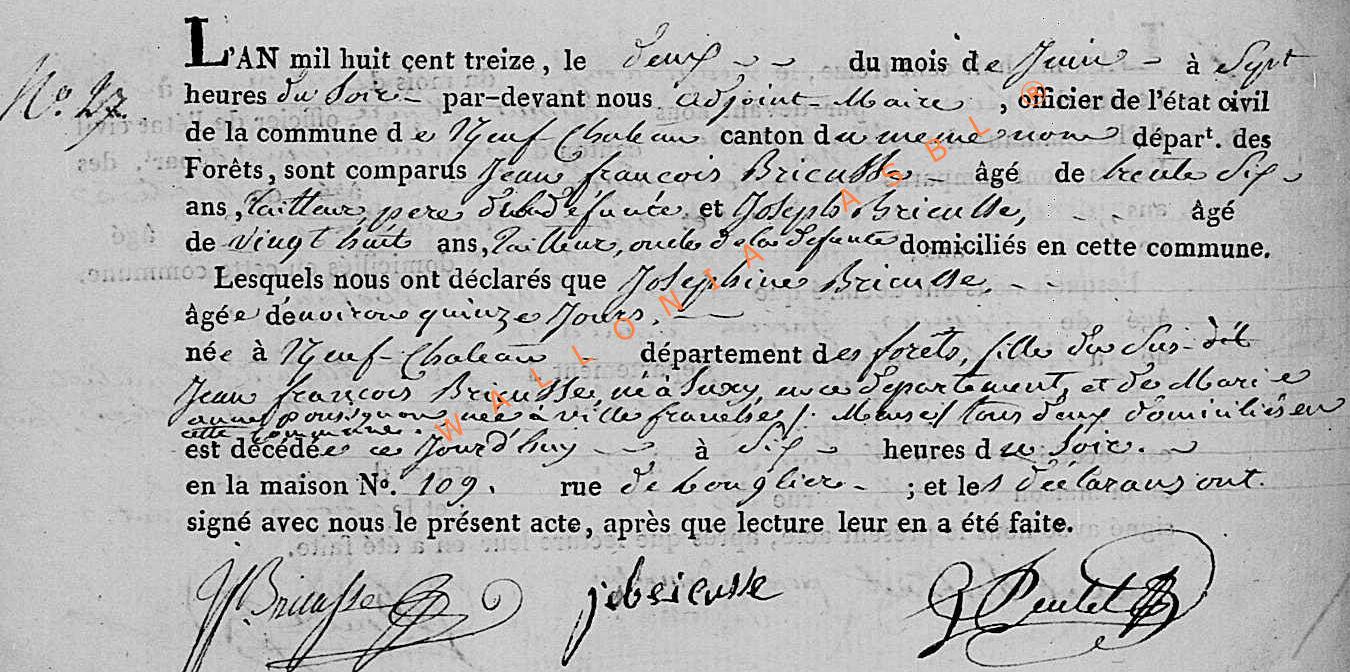 N°. 27.
L'AN mil huit çent treize, le deux du mois de Juin à Sept
heures du Soir par-devant nous adjoint Maire, officier de l'état civil
de la commune de Neuf-Chateau canton du meme nom départ. des
Forêts, sont comparus Jean françois Bricusse âgé de trente Six
ans, Tailleur, pere de la défunte. et Joseph Bricusse, âgé
de Vingt huit ans, Tailleur, oncle de la défunte domiciliés en cette commune.
Lesquels nous ont déclarés que Josephine Bricusse,
âgée d'environ quinze Jours,
née à Neuf-Chateau département des forêts, fille du Sus-dit
Jean françois Bricusse, né à Suxy, en ce departement, et de Marie
anne née à ville franche (Meuse) tous deux domiciliés en
cette commune.
est décédée ce Jourd'huy à Six heures du Soir.
en la maison N°. 109. rue de ; et les déclarans ont
signé avec nous le présent acte, après que lecture leur en a été faite.
Bricusse jobricusse
WALLONIA ASBL ®